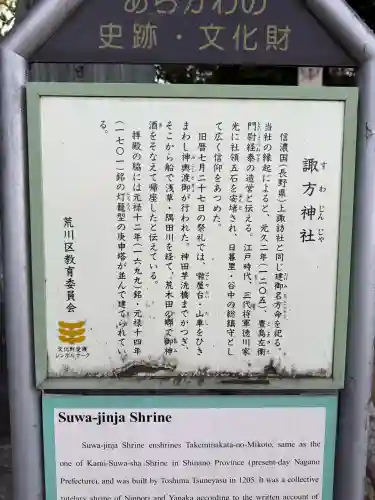 あらかわの
史跡・文化財
諏方神社
すわじんじゃ
信濃国(長野県)上諏訪社と同じ建御名方命を祀る。
当社の縁起によると、元久二年(一二〇五)、豊島左衛
門尉経泰の造営と伝える。江戸時代、三代将軍徳川家
光に社領五石を安堵され、日暮里・谷中の総鎮守とし
て広く信仰をあつめた。
旧暦七月二十七日の祭礼では、囃屋台・山車をひき
まわし神輿渡御が行われた。神田芋洗橋までかつぎ、
そこから船で浅草・隅田川を経て、荒木田の郷で御神
酒をそなえて帰座したと伝えている。
拝殿の脇には元禄十二年(一六九九)銘・元禄十四年
(一七〇一)銘の灯籠型の庚申塔が並んで建てられてい
る。
荒川区教育委員会
文化財愛護
シンボルマーク
Suwa-jinja Shrine
Suwa-jinja Shrine enshrines Takeminakata-no-Mikoto, same as the
one of Kami-Suwa-sha Shrine in Shinano Province (present-day Nagano
Prefecture), and was built by Toshima Tsuneyasu in 1205. It was a collective
tutelary shrine of Nippori and Yanaka according to the written account of